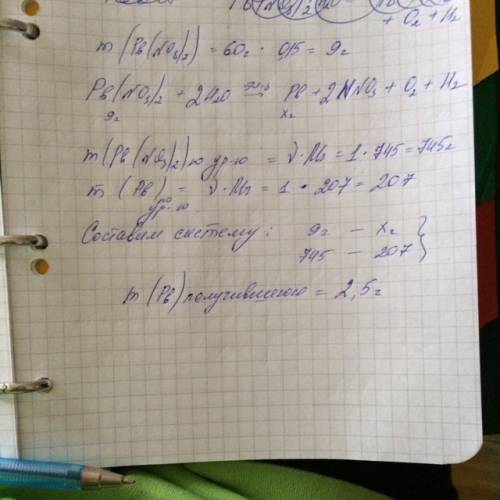 + O₂ + H₂
m (Pb(NO₃)₂) = 60г · 0,15 = 9г
Pb(NO₃)₂ + 2H₂O = Pb + 2HNO₃ + O₂ + H₂
9г x г
m (Pb(NO₃)₂) по ур-ю = ν · Mr = 1 · 745 = 745г
m (Pb) по ур-ю = ν · Mr = 1 · 207 = 207
Составим систему: 9г — xг
745 — 207
m (Pb) получившегося = 2,5г